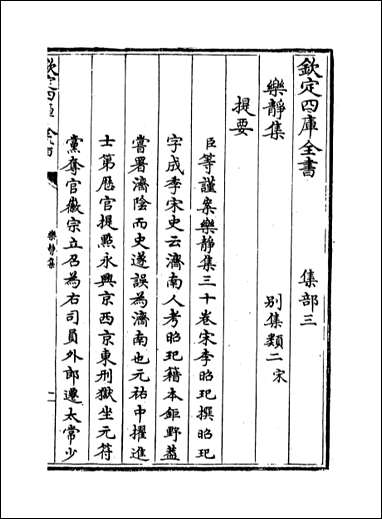 欽定四庫全書　集部三
樂靜集　別集類二宋
提要
臣等謹案樂靜集三十卷宋李昭玘撰昭玘
字成季宋史云濟南人考昭玘籍本鉅野蓋
嘗署濟陰而史遂誤為濟南也元祐中擢進
士第歷官提點永興京西京東刑獄坐元符
黨奪官徽宗立召為右司員外郎遷太常少
欽定四庫全書
樂靜集
一